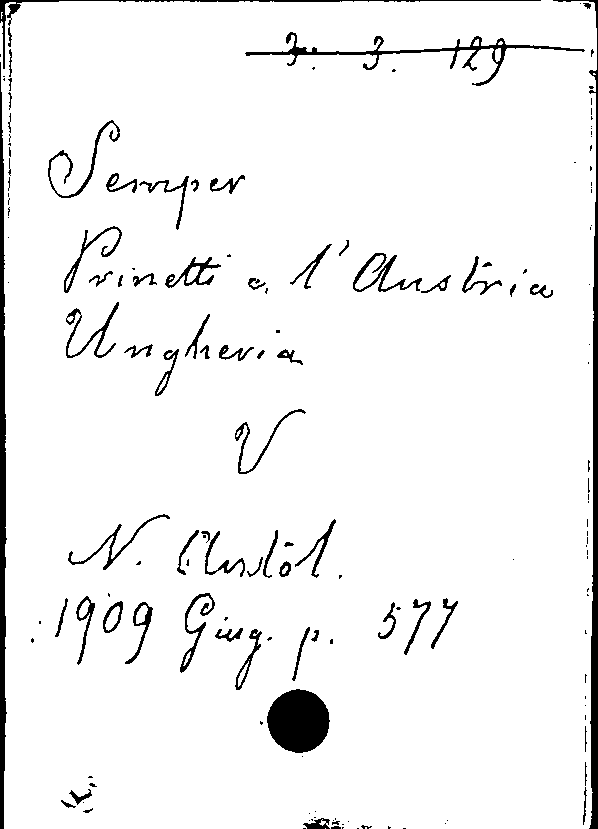 3. 3. 129
Semper
Prinetti e l'Austria
Ungheria
V
N. Antol.
1909 Giug. p. 577